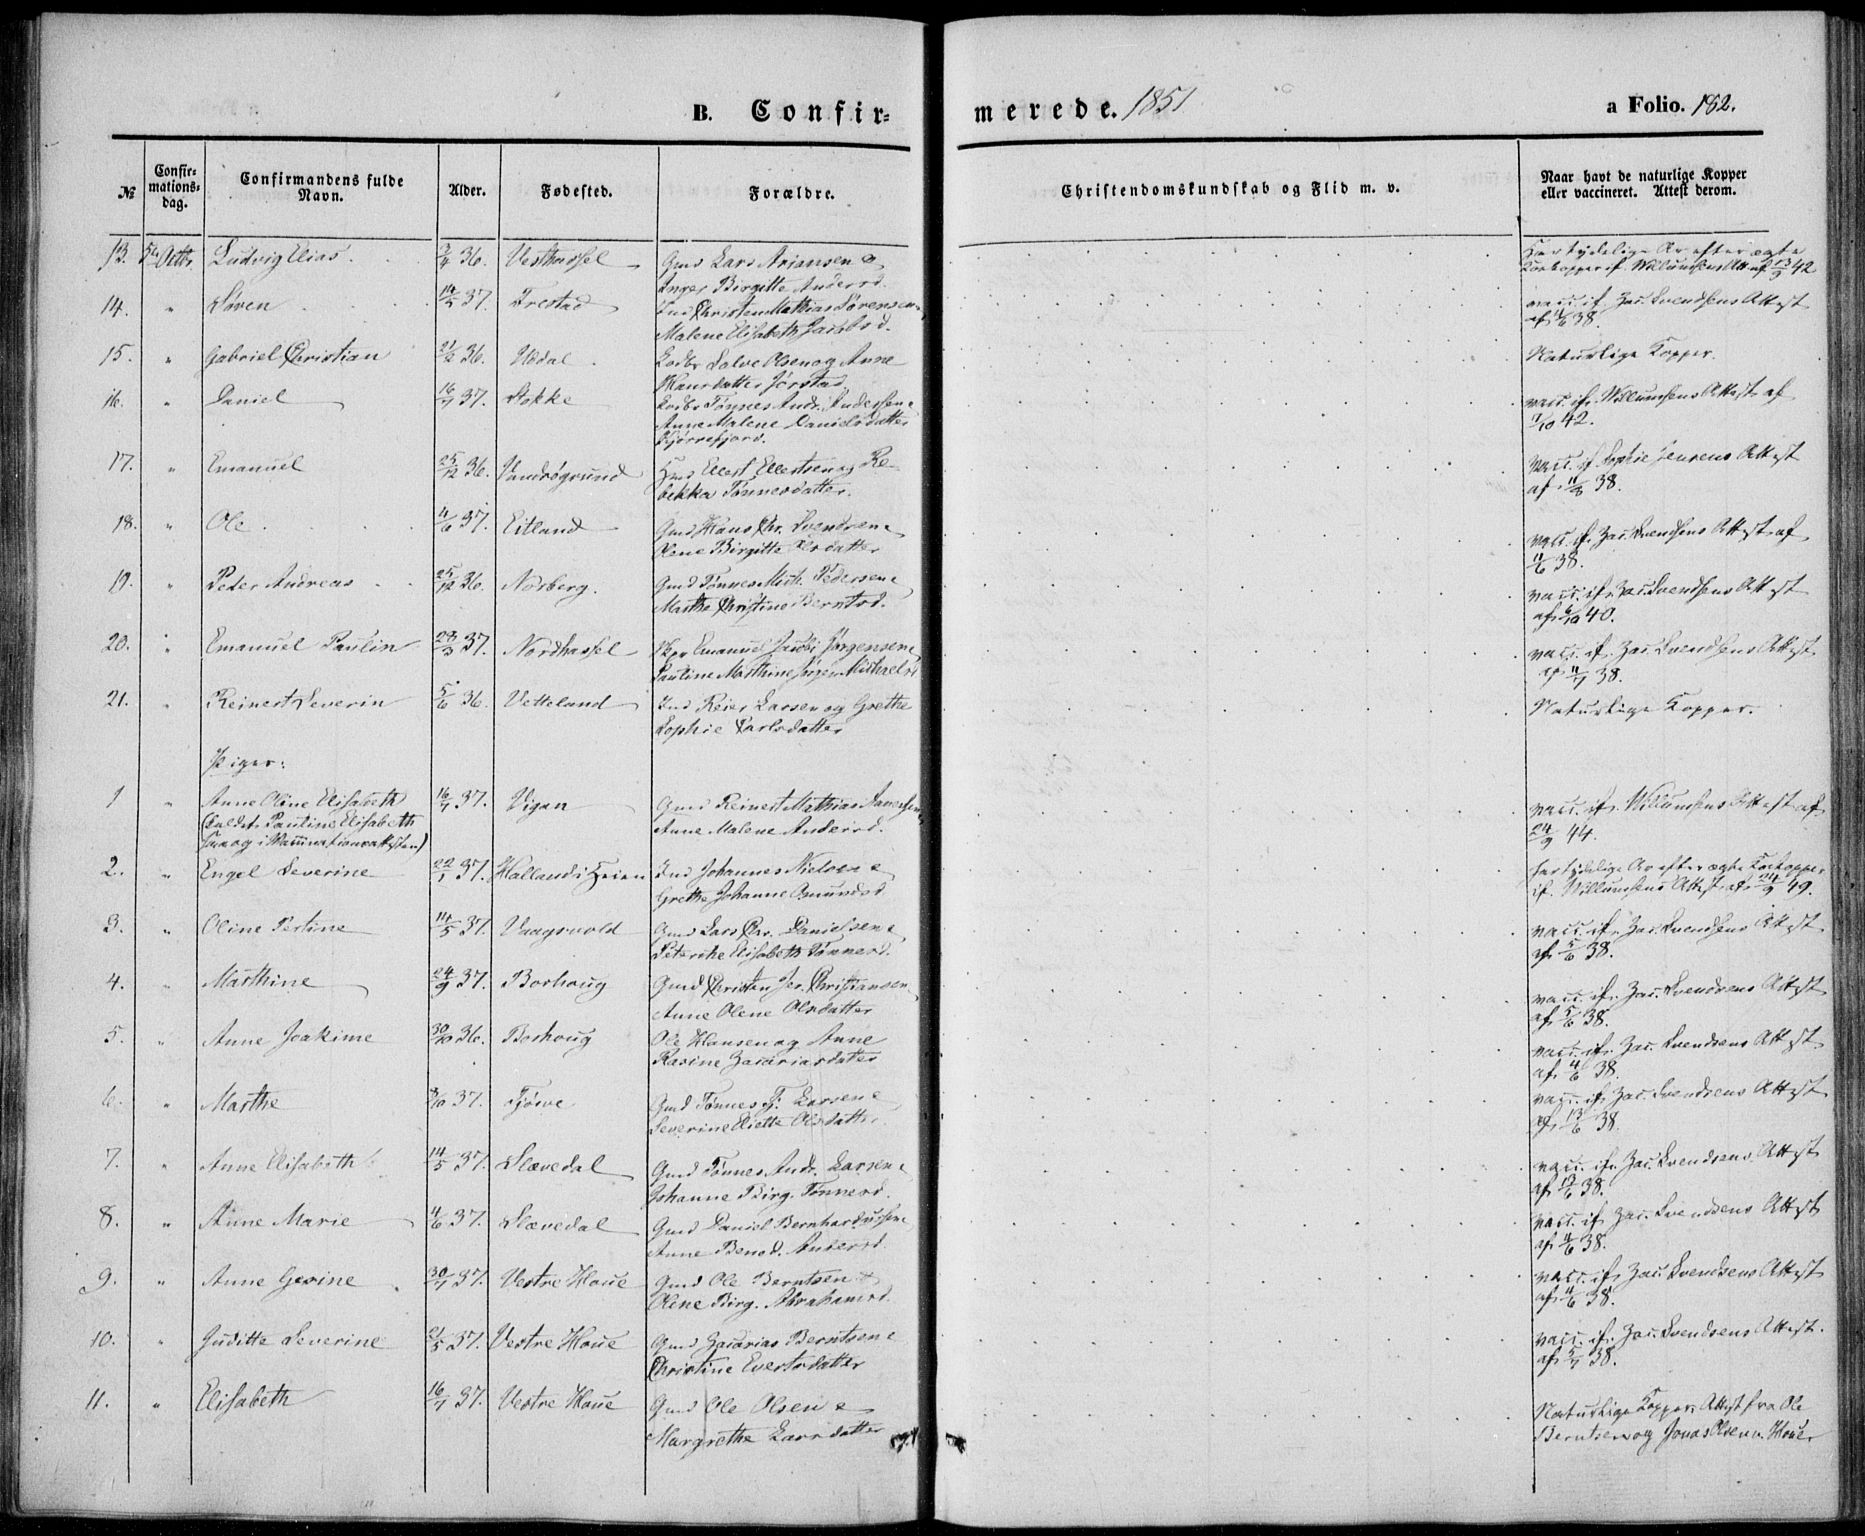 B. Confir=
merede. 1851
a Folio. 182.
No
Confir=
mations=
dag.
Confirmandens fulde
Navn.
Alder.
Fødested.
Forældre.
Christendomskundskab og Flid m. v.
Naar havt de naturlige Kopper
eller vaccineret. Attest derom.
13. 5te Octbr. Ludvig Elias 36. Vesthassel Gmd Lars Ariansen &
Inger Birgitte Andersd.
Har tydelige Ar efter ægte
Kokopper if. Willumsens Att. af 13/9 42
14. " Søren 14/5 37. Trestad Christen Mathias Sørensen
Malene Elisabeth Jacobsd.
vacc. if. Zac. Svendsens Attest
af 11/6 38.
15. " Gabriel Christian 21/12 36. Udal Salve Olsen og Anne
Hansdatter Jørstad
Naturlige Kopper.
16. " Daniel 16/7 37. Stokke Tønnes Andr. Andersen &
Anne Malene Danielsdatter
Kjørrefjord.
vacc. if. Willumsens Attest af
7/10 42.
17. " Emanuel 25/12 36. Vandrøgrund Ellert Ellertsen og Re-
bekka Tønnesdatter.
vacc. if. Sophie Jensens Attest
af 11/8 38.
18. " Ole 4/6 37. Eitland Gmd Hans Chr. Svendsen &
Olene Birgitte Olsdatter
vacc. if. Zac. Svendsens Attest af
11/6 38.
19. " Peder Andreas 25/12 36. Norberg. Gmd Tønnes Mich. Pedersen &
Marthe Christine Berntsd.
vacc. if. Zac. Svendsens Attest
af 6/10 40.
20. " Emanuel Paulin 28/3 37. Nordhassel Emanuel Jacob Jørgensen &
Pauline Marthine Jørgine Michaelsd
vacc. if. Zac. Svendsens Attest
af 11/7 38.
21. " Reinert Severin 5/6 36. Vetteland Reier Larsen og Grethe
Sophie Carlsdatter
Naturlige Kopper.
Piger:
1 " Anne Oline Elisabeth 16/7 37. Vigan Gmd Reinert Mathias Aanensen &
(kaldet Pauline Elisabeth Anne Malene Andersd.
saaog i Vaccinationsattesten)
vacc. if. Willumsens Attest af
24/9 44.
2. " Engel Severine 22/1 37. Hallands Heien Johannes Nielsen &
Grethe Johanne Omundsd
har tydelige Ar efter ægte Kokopper
if. Willumsens Attest af 24/9 49.
3. " Oline Pertine 14/5 37. Vaagsvold Gmd Lars Chr. Danielsen &
Petersche Elisabeth Tønnesd.
vacc. if. Zac. Svendsens Attest
af 5/6 38.
4. " Marthine 24/9 37. Borhoug Gmd Christen Jer. Christiansen &
Anne Olene Olsdatter
vacc. if. Zac. Svendsens Attest
af 5/6 38.
5. " Anne Joakime 30/10 36. Borhoug Ole Hansen og Anne
Rasine Zacariasdatter
vacc. if. Zac. Svendsens Attest
af 4/6 38.
6. " Marthe 37. Tjørve Gmd Tønnes Tj. Larsen &
Severine Eliette Olsdatter
vacc. if. Zac. Svendsens Attest
af 13/6 38.
7. " Anne Elisabeth 14/5 37. Slævedal Gmd Tønnes Andr. Larsen &
Johanne Birg. Tønnesd.
vacc. if. Zac. Svendsens Attest
af 12/6 38.
8. " Anne Marie 4/6 37. Slævedal Gmd Daniel Bernhardussen &
Anne Bened. Andersd.
vacc. if. Zac. Svendsens Attest
af 4/6 38.
9. " Anne Gesine 30/7 37. Vestre Haue Gmd Ole Berntsen &
Olene Birg. Abrahamsd.
vacc. if. Zac. Svendsens Attest
af 11/6 38.
10. " Juditte Severine 21/5 37. Vestre Haue Gmd Zacarias Berntsen &
Christine Evertsdatter
vacc. if. Zac. Svendsens Attest.
af 5/7 38.
11. " Elisabeth 16/7 37. Vestre Haue Gmd Ole Olsen &
Margrethe Larsdatter
Naturlige Kopper, Attest fra Ole
Berntsen og Jonas Olsen v. Haue